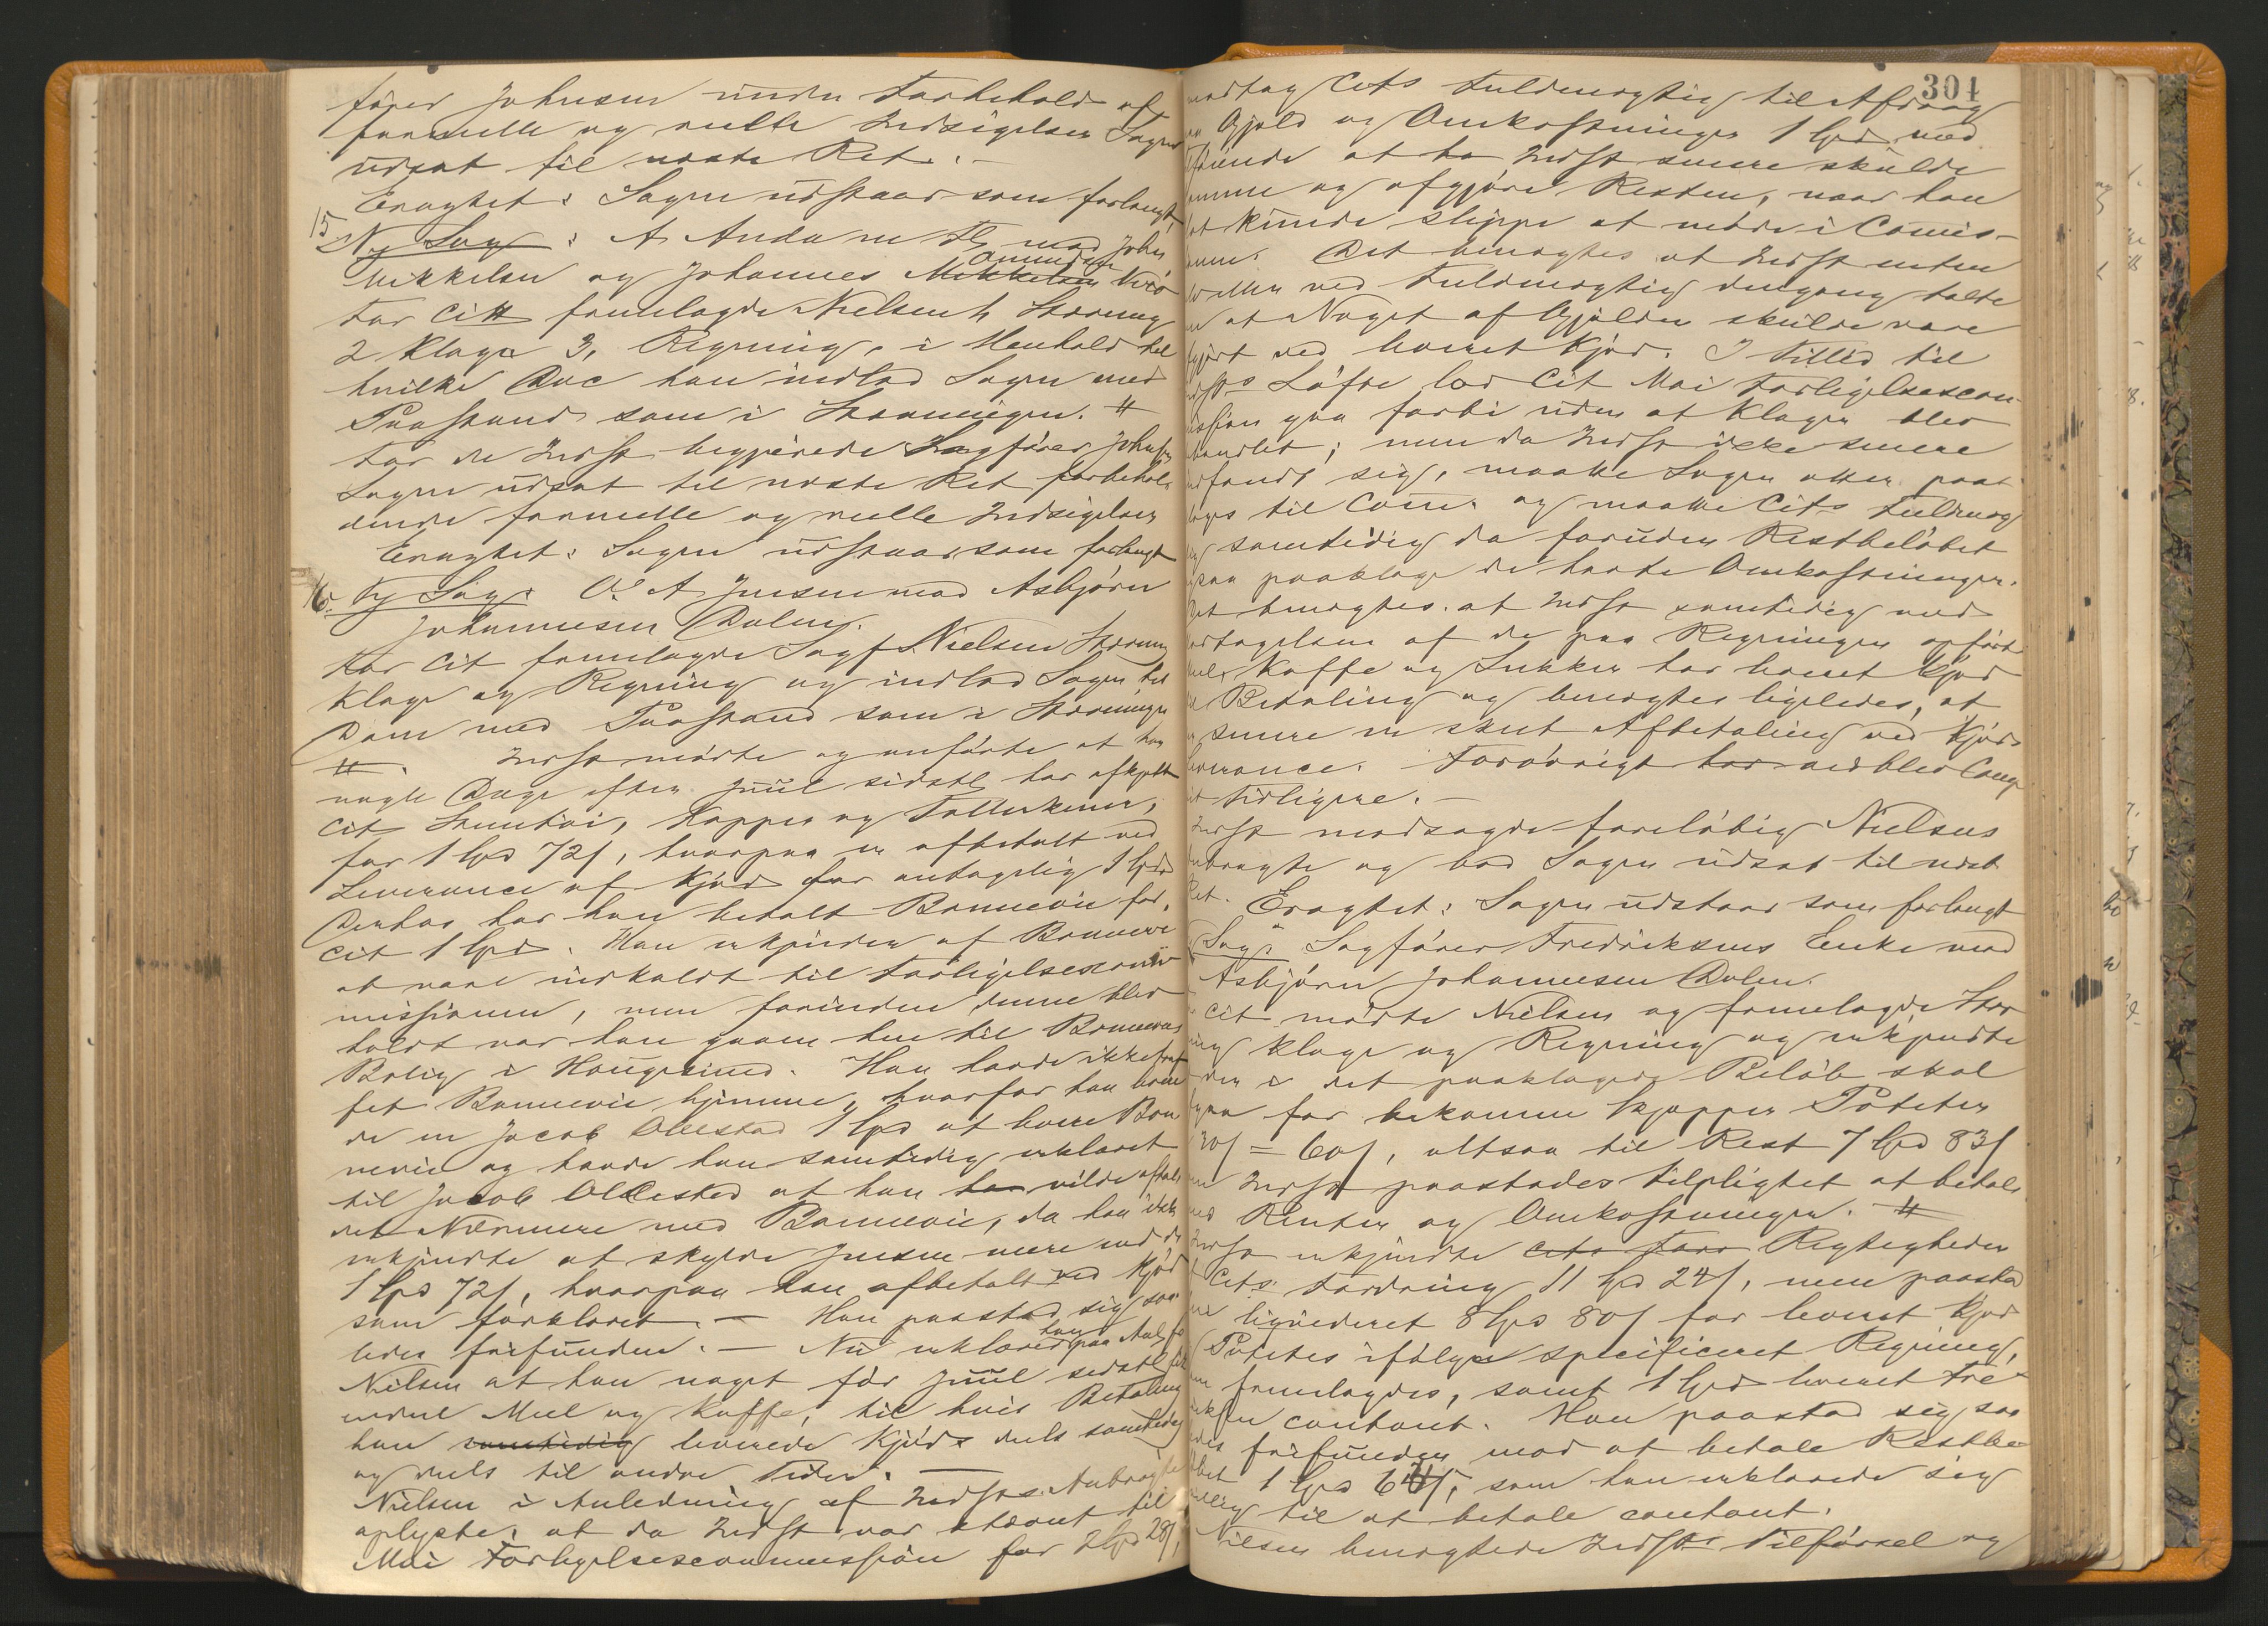 fører Johnsen under Forbehold af
formelle og reelle Indsigelser Sagen
udsat til næste Ret. —
Eragtet: Sagen udstaar som forlangt
15 Ny Sag: A. Anda m Fl mod John
Mikkelsen og Johannes Mikkelsen Amundsen
For Citt fremlagde Nielsen 1, Stevning
2 Klage 3, Regning, i Henhold til
hvilke Doc han indlod Sagen med
Paastand som i Stevningen. #
For de Indst begjærede Sagfører Johnsen
Sagen udsat til næste Ret forbehol-
dende formelle og reelle Indsigelser
Eragtet: Sagen udstaar som forlangt
16. Ny Sag: O. A Jensen mod Asbjørn
Johannesen Dalen.
For Cit fremlagde Sagf. Nielsen Stevning
Klage og Regning og indlod Sagen til
Dom med Paastand som i Stevningen
#. Indst mødte og anførte at han
nogle Dage efter Juul sidstl har afkjøbt
Cit Steentøi, Kopper og Tallerkener,
for 1 Spd 72 s, hvorpaa er afbetalt ved
Leverance af Kjød for antagelig 1 Spd
Derhos har han betalt Bonnevie for
Cit 1 Spd. Han erkjender af Bonnevie
at være indkaldt til Forligelsescom-
missionen, men forinden denne blev
holdt var han gaaen hen til Bonnevies
Bolig i Haugesund. Han havde ikke truf-
fet Bonnevie hjemme, hvorfor han leve
de en Jacob Ollestad 1 Spd at levere Bon
nevie og havde han samtidig erklæret
til Jacob Ollestad at han har vilde aftale
det Nærmere med Bonnevie, da han ikke
erkjendte at skylde Jensen mere end de
1 Spd 72 s, hvorpaa han afbetalt ved Kjød
som forklaret. — Han paastod sig saa
ledes frifunden. — Nu erklærer han paa Anl fra
Nielsen at han noget før Juul sidstl fik
endeel Meel og Kaffe, til hvis Betaling
han samtidig leverede Kjød deels samtidig
og deels til andre Tider. —
Nielsen i Anledning af Indstes Anbragte
oplyste, at da Indst var stævnt til
Mai Forligelsescommission for 2 Spd 28 s,
304
modtog Cits Fuldmægtig til Afdrag
paa Gjæld og Omkostninger 1 Spd med
Løfte at ha Indst senere skulde
komme og afgjøre Resten, naar han
blot kunde slippe at møde i Comis-
sionen. Det benægtes at Indst enten
selv eller ved Fuldmægtig dengang talte
om at Noget af Gjælden skulde være
afgjort ved leveret Kjød. I Tillid til
Indsts Løfte lod Cit Mai Forligelsescom-
mission gaa forbi uden at Klagen blev
behandlet; men da Indst ikke senere
indfandt sig, maatte Sagen atter paa-
klages til Com. og maatte Cits Fuldmæg
tig samtidig da foruden Restbeløbet
ogsaa paaklage de havte Omkostninger.
Det benægtes at Indst samtidig med
Modtagelsen af de paa Regningen opførte
Meel, Kaffe og Sukker har leveret Kjød
til Betaling og benægtes ligeledes, at
der senere er skeet Afbetaling ved Kjød-
leverance. Forøvrigt
tidligere. —
Indst modsagde foreløbig Nielsens
Anbragte og bad Sagen udsat til næste
Ret. Eragtet: Sagen udstaar som forlangt
Sag: Sagfører Fredriksens Enke mod
Asbjørn Johannesen Dalen.
Cit mødte Nielsen og fremlagde Stev
ning Klage og Regning og erkjendte
der i det paaklagede Beløb skal
gaa for bekomne Kjopper Poteter
30 s = 60 s, altsaa til Rest 7 Spd 83 s
som Indst paastodes tilpligtet at betale
med Renter og Omkostninger. #
Indst erkjendte Cits Ford Rigtigheden
af Cits Fordring 11 Spd 24 s, men paastod
likvideret 8 Spd 80 s for leveret Kjød
Potetes ifølge specificeret Regning,
som fremlagdes, samt 1 Spd leveret Fre-
driksen contant. Han paastod sig saa
ledes frifunden mod at betale Restbe
løbet 1 Spd 64 s, som han erklærede sig
villig til at betale contant.
Nielsen benægtede Indsts Tilførsel og